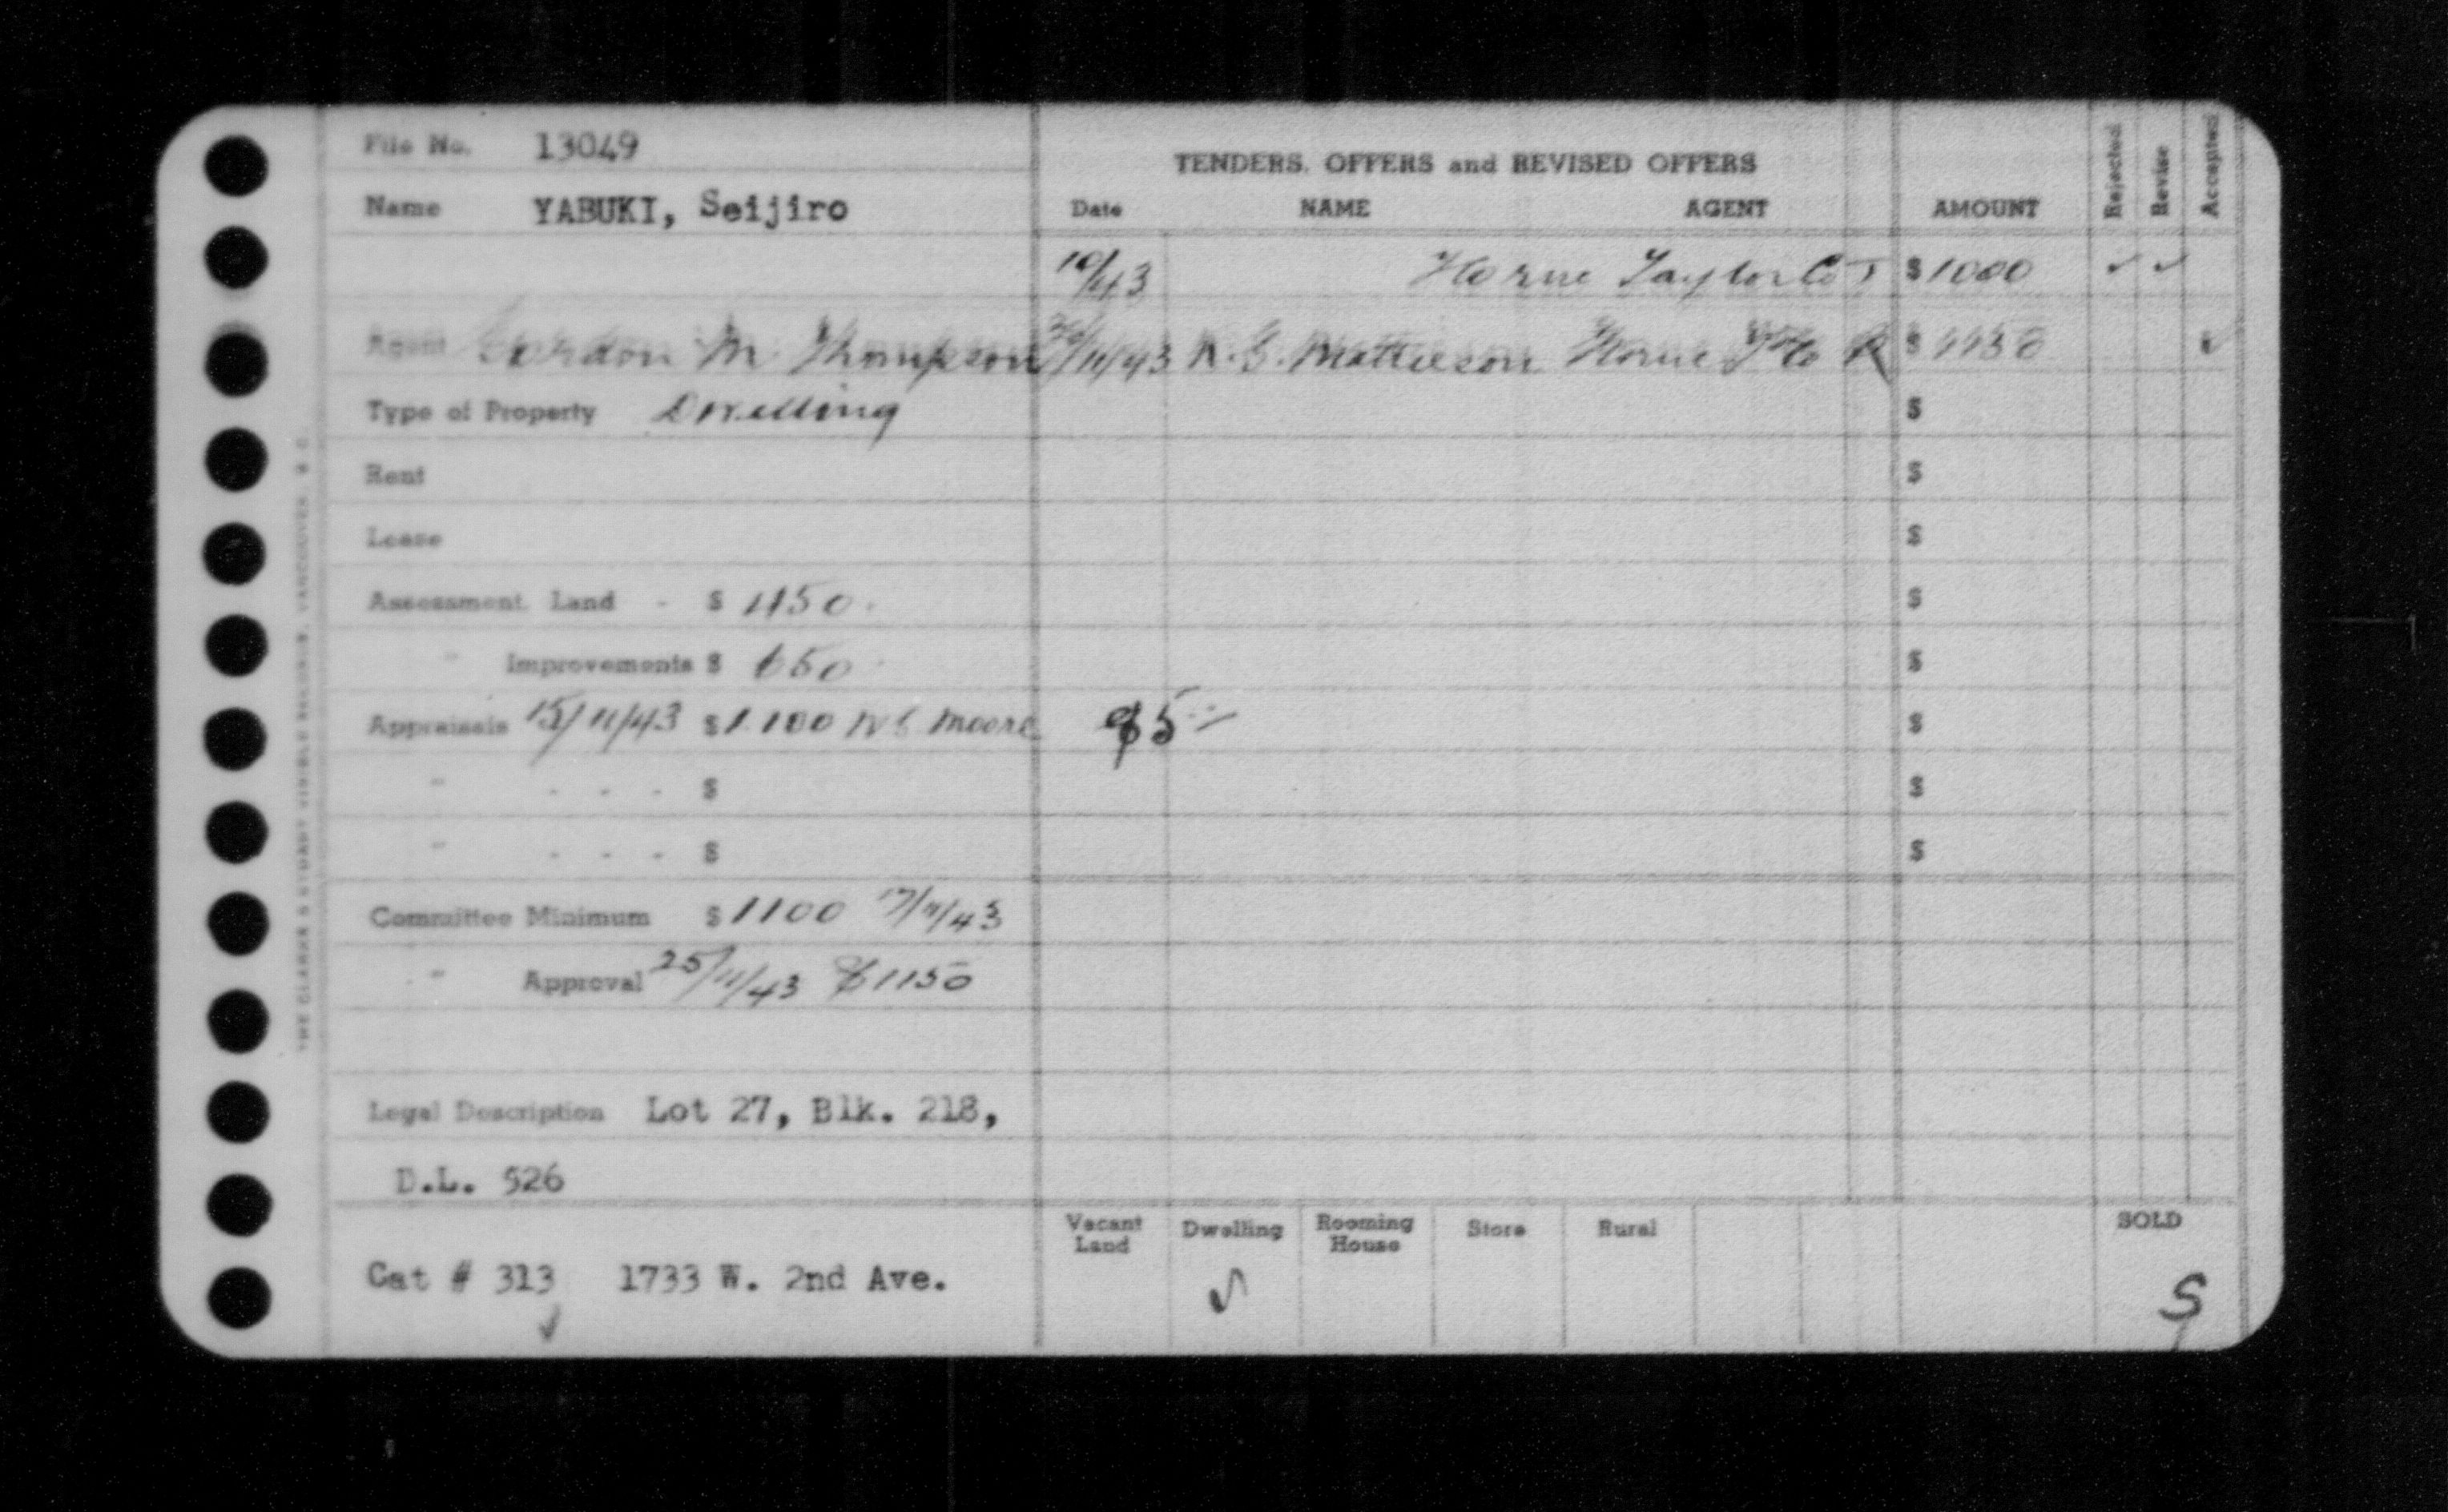 File No. 13049
Name YABUKI, Seijiro
Agent Gordon M. Thompson
Type of Property Dwelling
Rent
Lease
Assessment. Land - $ 1150.
" Improvements $ 650
Appraisals 15/11/43 $1100 Moore $5
" - - - $
" - - - $
Committee Minimum $1100 17/11/43
" Approval 25/11/43 $1150
Legal Description Lot 27, Blk. 218,
D.L. 526
Cat # 313 1733 W. 2nd Ave.
TENDERS, OFFERS and REVISED OFFERS
Date NAME AGENT AMOUNT Rejected Revise Accepted
10/43 Horne Taylor Co T $1000 ✓ ✓
/11/43 Mattieson Horne T Co R $ 1150 ✓
$
$
$
$
$
$
$
$
Vacant Land Dwelling Rooming House Store Rural SOLD
✓ S